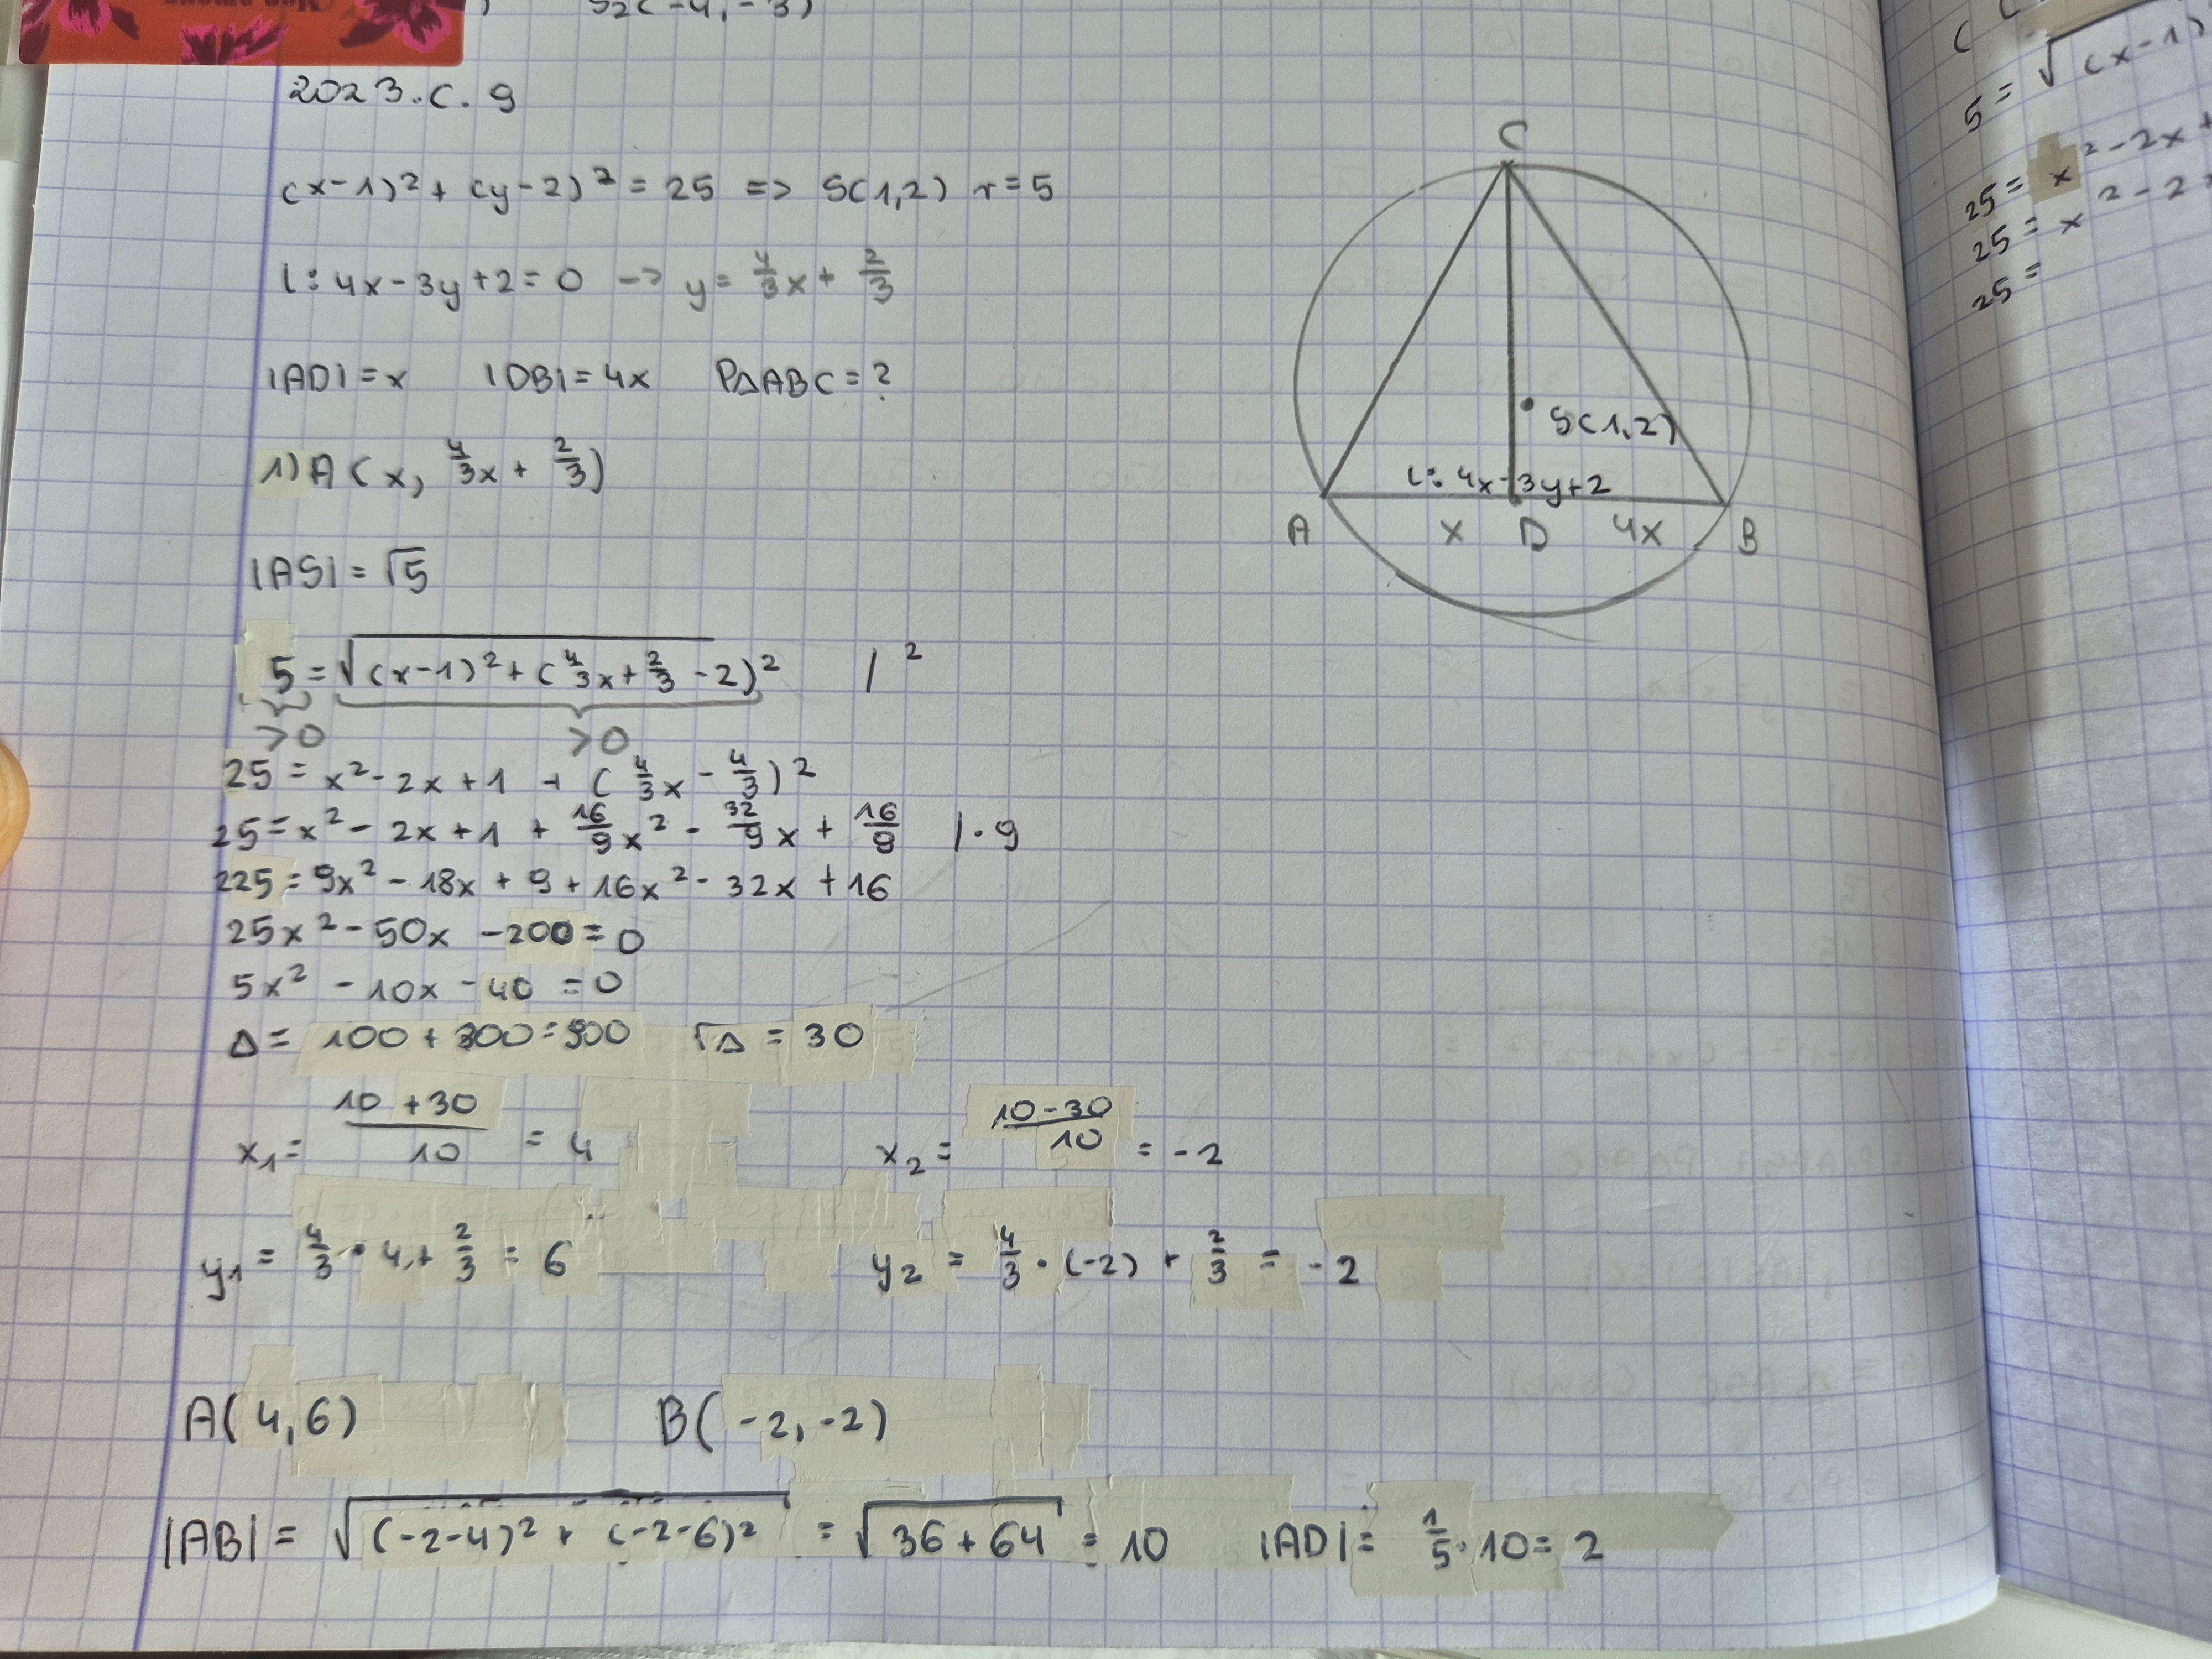 S₂(-4,-3)
2023.C.9
(x-1)² + (y-2)² = 25 => S(1,2) r=5
l: 4x-3y+2=0 -> y= 4/3x + 2/3
|AD|=x |DB|=4x P△ABC=?
1) A(x, 4/3x + 2/3)
|AS| = √5
5 = √(x-1)² + (4/3x + 2/3 - 2)² /²
>0 >0
25 = x² - 2x + 1 + (4/3x - 4/3)²
25 = x² - 2x + 1 + 16/9x² - 32/9x + 16/9 /·9
225 = 9x² - 18x + 9 + 16x² - 32x + 16
25x² - 50x - 200 = 0
5x² - 10x - 40 = 0
Δ = 100 + 800 = 900 √Δ = 30
x₁ = 10+30/10 = 4 x₂ = 10-30/10 = -2
y₁ = 4/3 · 4 + 2/3 = 6 y₂ = 4/3 · (-2) + 2/3 = -2
A(4,6) B(-2,-2)
|AB| = √(-2-4)² + (-2-6)² = √36+64 = 10 |AD| = 1/5 · 10 = 2
C
S(1,2)
l: 4x-3y+2
A x D 4x B
5 = √(x-1)
25 = x² - 2x +
25 = x² - 2
25 =